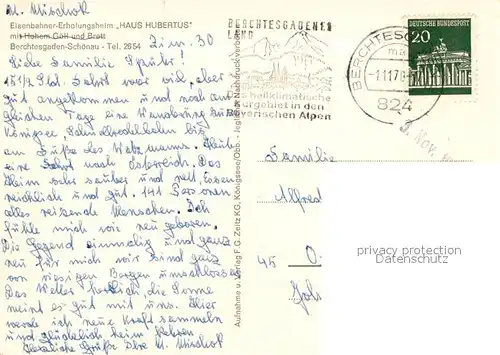 M. Mischok
Eisenbahner-Erholungsheim „HAUS HUBERTUS"
mit Hohem Göll und Brett
Berchtesgaden-Schönau - Tel. 2654
Zim. 30
Liebe Familie
15 1/2 Std. Fahrt war ich, aber
gut angekommen und noch am
gleichen Tage eine Wanderung zum
Königsee, Schlittenrodelbahn bis
am Fuße des Watzmanns. Heute
eine Fahrt nach Österreich. Das
Heim sehr sauber und nett, Essen
reichlich und gut. 141 Personen
alles reizende Menschen. Ich
fühle mich wie neu geboren.
Die Gegend einmalig und ganz
neu für mich wir sind ganz
von riesigen Bergen umschlossen
Das Wetter herrlich, die Sonne
meint es gut mit uns. Hier
werde ich neue Kraft sammeln
und glücklich heim
Herzliche Grüße Ihre M. Mischok
Aufnahme u. Verlag F. G. Zeitz KG, Königssee/Obb. - Jegliches Nachdruckverbot
BERCHTESGADENER
LAND
heilklimatische
Kurgebiet in den
Bayerischen Alpen
BERCHTESG
-1.11.70
824
DEUTSCHE BUNDESPOST
20
3. Nov.
Familie
Alfred
45
privacy protection
www.akpool.de